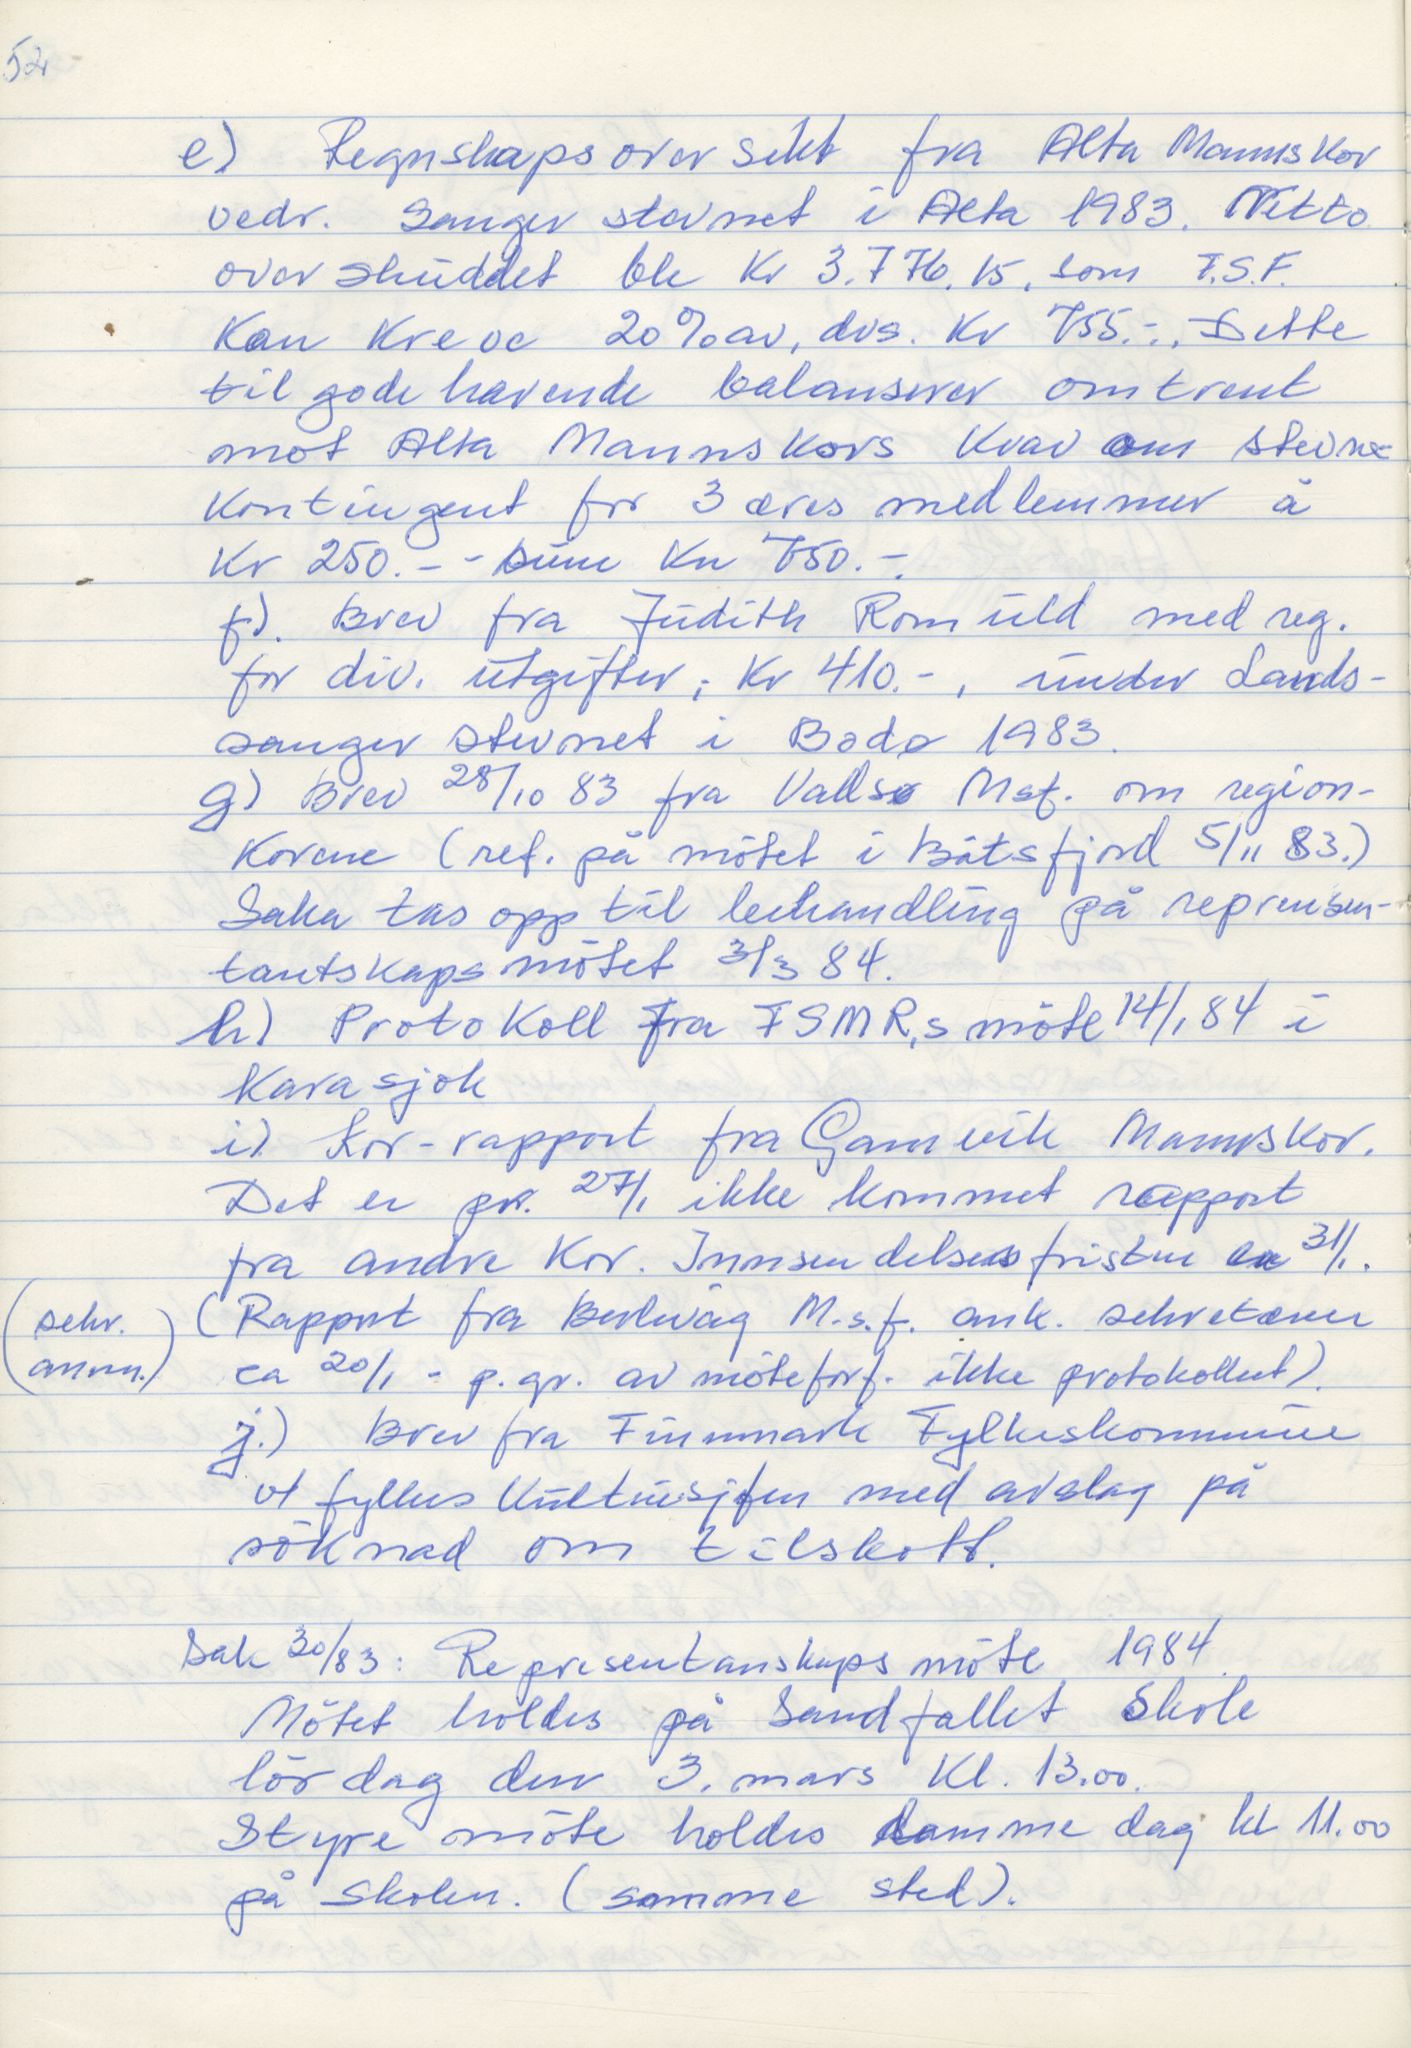 52
e) Regnskapsoversikt fra Alta Mannskor
vedr. Sangerstevnet i Alta 1983. Netto
overskuddet ble Kr 3.776,15, som F.S.F.
kan kreve 20% av, dvs. Kr 755.-. Dette
tilgodehavende balanserer omtrent
mot Alta Mannskors krav om stevne-
kontingent for 3 æresmedlemmer á
Kr 250.- - sum Kr 750.-.
f). Brev fra Judith Romuld med reg.
for div. utgifter, Kr 410.-, under Lands-
sangerstevnet i Bodø 1983.
g) Brev 28/10 83 fra Vadsø Msf. om region-
korene (ref. på møtet i Båtsfjord 5/11 83.)
Saka tas opp til behandling på reprensen-
tantskapsmøtet 3/3 84.
h) Protokoll fra FSMR,s møte 14/1 84 i
Karasjok
i) Kor-rapport fra Gamvik Mannskor.
Det er pr. 27/1 ikke kommet rapport
fra andre kor. Innsendelsesfristen er 31/1.
(sekr. anm.) (Rapport fra Berlevåg M.s.f. ank. sekretæren
ca 20/1 - p.gr. av møteforf. ikke protokollert).
j.) Brev fra Finnmark Fylkeskommune
v/ fylkeskultursjefen med avslag på
søknad om tilskott.
Sak 30/83: Representanskapsmøte 1984.
Møtet holdes på Sandfallet Skole
lørdag den 3. mars Kl. 13.00.
Styremøte holdes samme dag kl 11.00
på skolen. (samme sted).